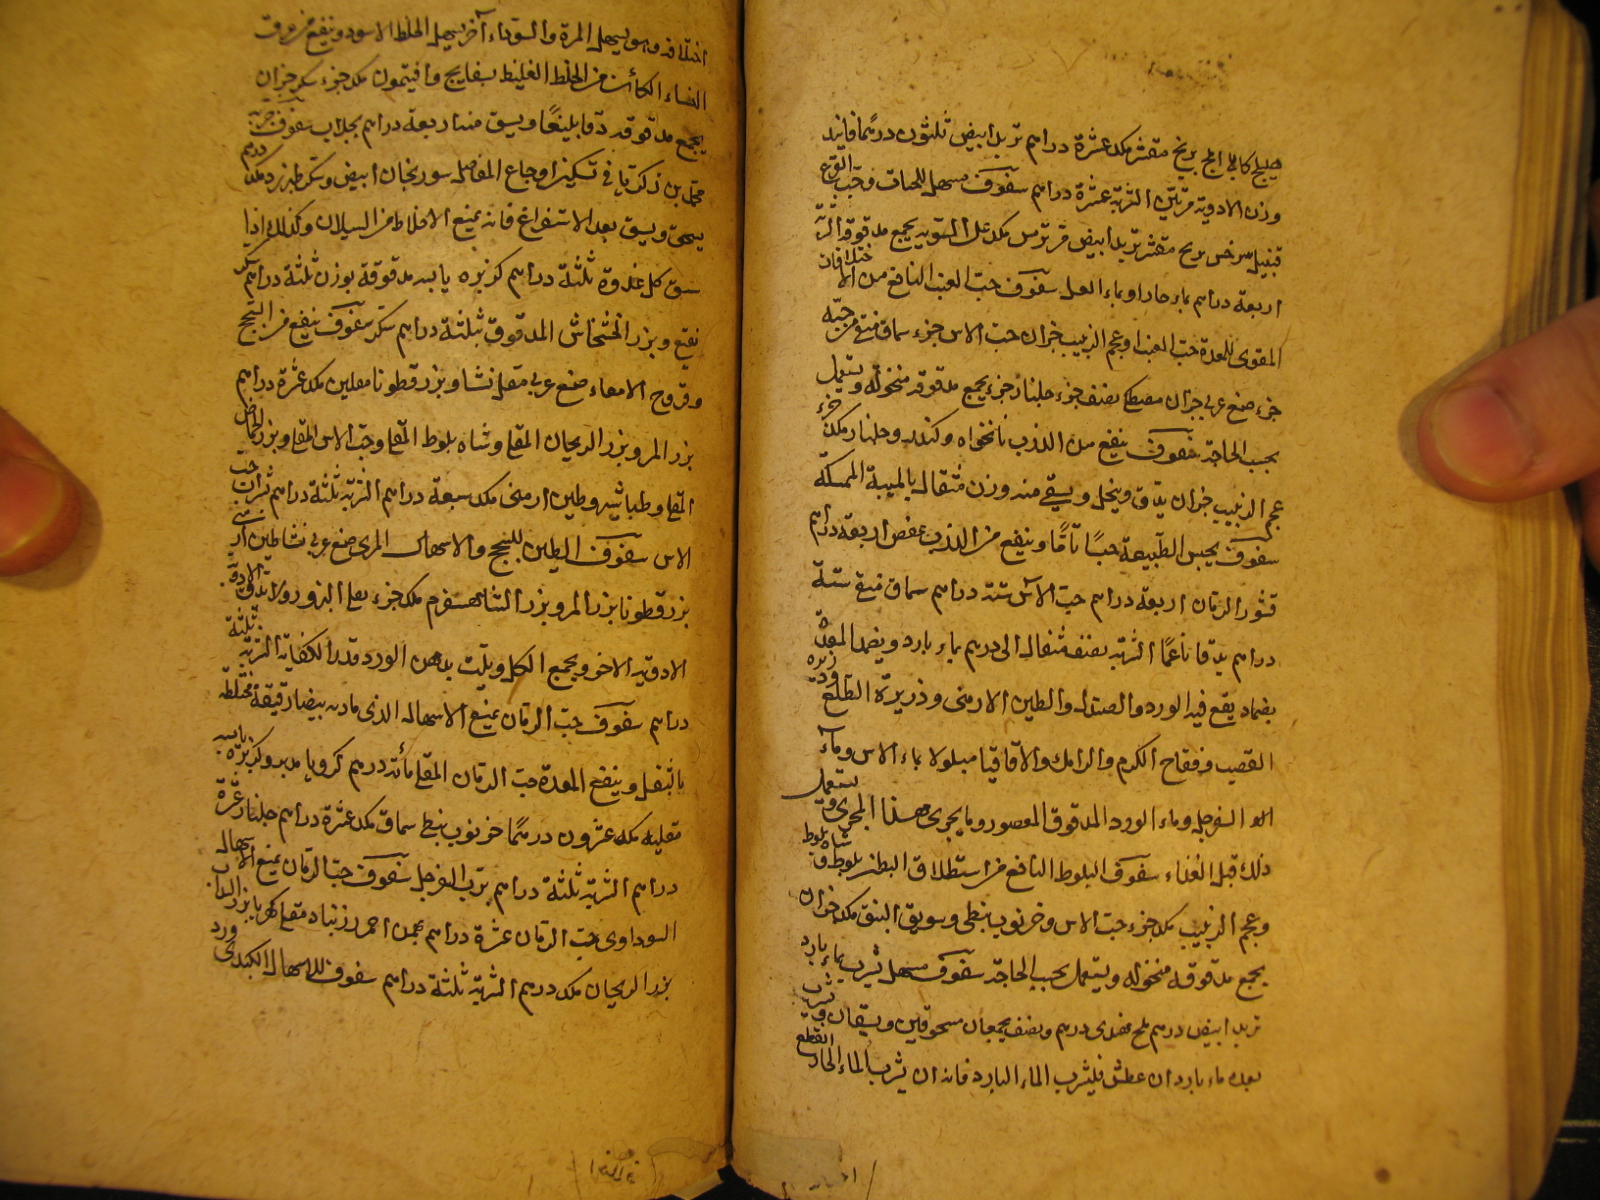 هليلج كابلي املج برنج مقشر مكد عشرة دراهم تربد ابيض ثلثون درهما فانيد
وزن الادوية مرتين الشربة عشرة دراهم سفوف مسهل للحيات وحب القرع
قنبيل سرخس برنج مقشر تربد ابيض ترمس مكد على السوية يجمع مدقوقة الشربة
اربعة دراهم بماء حار او بماء العسل سفوف حب العنب النافع من الاختلاف
المقوى للمعدة حب العنب او عجم الزبيب جزان حب الاس جزء سماق منقى من حبه
جزء صمغ عربي جزان مصطكى نصف جزء جلنار جزء يجمع مدقوقة منخولة ويستعمل
بحسب الحاجة سفوف ينفع من الذرب نانخواه وكندر وجلنار مكد جزء
عجم الزبيب جزان يدق وينخل ويسقى منه وزن مثقال بالميبة الممسكة
سفوف يحبس الطبيعة حبسا تاما وينفع من الذرب عفص اربعة دراهم
قشور الرمان اربعة دراهم حب الآس ستة دراهم سماق منقى ستة
دراهم يدق ناعما الشربة نصف مثقال الى درهم بماء بارد ويضمد المعدة
بضماد يقع فيه الورد والصندل والطين الارمنى وذريرة الطلع وذريرة
القصب وفقاح الكرم والرامك والاقاقيا مبلولا بماء الاس وماء
السفرجل وماء الورد المدقوق المعصور وما يجرى هذا المجرى ويستعمل
ذلك قبل الغذاء سفوف البلوط النافع من استطلاق البطن بلوط وشاه بلوط
وعجم الزبيب مكد جزء حب الاس وخرنوب نبطى وسويق النبق مكد جزان
يجمع مدقوقة منخولة ويستعمل بحسب الحاجة سفوف مسهل يشرب بماء بارد
تربد ابيض درهم ملح هندى درهم ونصف يجمعان مسحوقين ويسقان ويشرب
بعده ماء بارد ان عطش فليشرب الماء البارد فانه ان يشرب الماء الحار انقطع
اختلافه وهو يسهل المرة والسوداء آخر يسهل الخلط الاسود وينفع من عرق
النساء الكائن من الخلط الغليظ بسفايج وافيتمون مكد جزء سكر جزان
يجمع مدقوقة دقا بليغا ويسقى منها اربعة دراهم بجلاب سفوف جربه
محمد بن زكريا في تسكين اوجاع المفاصل سورنجان ابيض وسكر طبرزد مكد درهم
يسحق ويسقى بعد الاستفراغ فانه يمنع الاخلاط من السيلان وكذلك اذا
سقى كل غدوة ثلثة دراهم كزبرة يابسة مدقوقة بوزن ثلثة دراهم سكر
نفع وبزر الخشخاش المدقوق بثلثة دراهم سكر سفوف ينفع من السحج
وقروح الامعاء صمغ عربي مقلى نشا وبزرقطونا مقلين مكد عشرة دراهم
بزر المرو وبزر الريحان المقلى وشاه بلوط المقلى وحب الاس المقلى وبزر الحماض
المقلى وطباشير وطين ارمنى مكد سبعة دراهم الشربة ثلثة دراهم بشراب حب
الاس سفوف الطين للسحج والاسهال المرى صمغ عربي نشا طين ارمنى
بزرقطونا بزر المرو وبزر الشاهسفرم مكد جزء يقلى البزور ولا تدق الادوية
الادوية الاخر ويجمع الكل ويلت بدهن الورد قدر الكفاية الشربة ثلثة
دراهم سفوف حب الرمان يمنع الاسهال الذى مادته بيضا رقيقة مختلطة
بالثفل وينفع المعدة حب الرمان المقلى مأئة درهم كرويا مدبر وكزبرة يابسة
مقلية مكد عشرون درهما خرنوب نبطى سماق مكد عشرة دراهم جلنار عشرة
دراهم الشربة ثلثة دراهم برب السفرجل سفوف حب الرمان يمنع الاسهال
السوداوى حب الرمان عشرة دراهم بهمن احمر زرنباد مقلى كهربا بزر
بزر الريحان مكد درهم الشربة ثلثة دراهم سفوف للاسهال الكبدى ورد